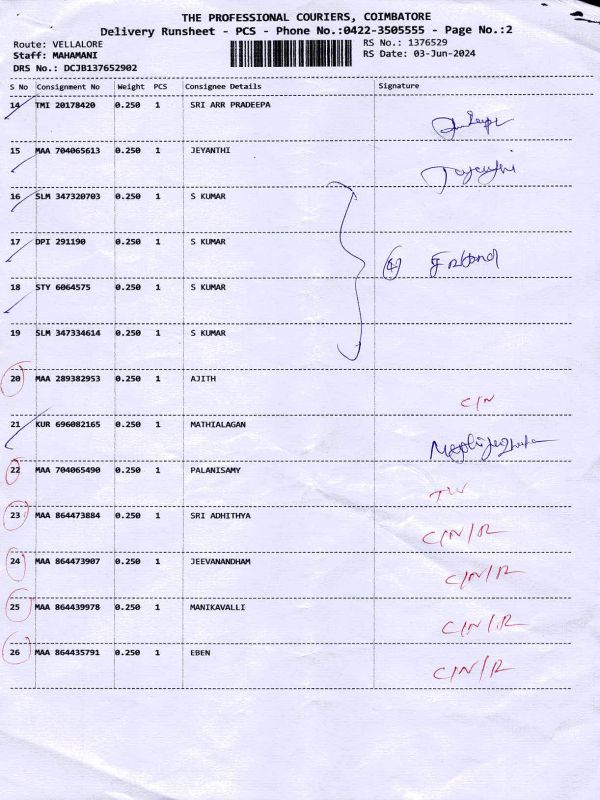 THE PROFESSIONAL COURIERS, COIMBATORE
Delivery Runsheet - PCS - Phone No.:0422-3505555 - Page No.:2
Route: VELLALORE RS No.: 1376529
Staff: MAHAMANI RS Date: 03-Jun-2024
DRS No.: DCJB137652902
S No Consignment No Weight PCS Consignee Details Signature
14 TMI 20178420 0.250 1 SRI ARR PRADEEPA
15 MAA 704065613 0.250 1 JEYANTHI
16 SLM 347320703 0.250 1 S KUMAR
17 DPI 291190 0.250 1 S KUMAR
18 STY 6064575 0.250 1 S KUMAR
19 SLM 347334614 0.250 1 S KUMAR
20 MAA 289382953 0.250 1 AJITH C/N
21 KUR 696082165 0.250 1 MATHIALAGAN
22 MAA 704065490 0.250 1 PALANISAMY
23 MAA 864473884 0.250 1 SRI ADHITHYA C/N/R
24 MAA 864473907 0.250 1 JEEVANANDHAM C/N/R
25 MAA 864439978 0.250 1 MANIKAVALLI C/N/R
26 MAA 864435791 0.250 1 EBEN C/N/R